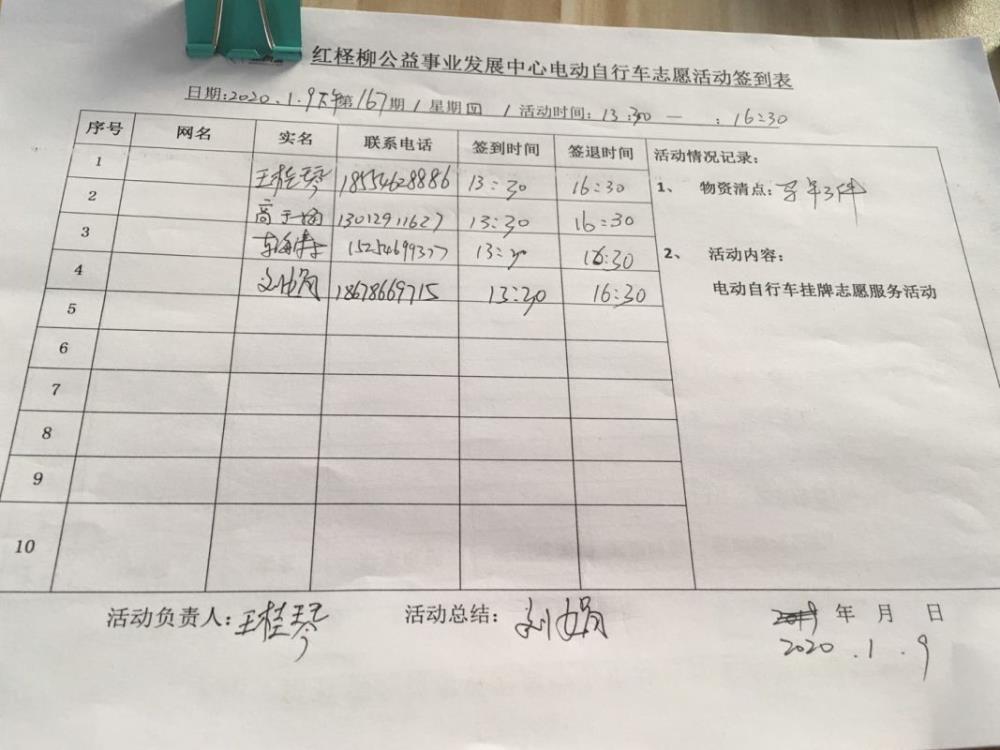 红柽柳公益事业发展中心电动自行车志愿活动签到表
日期:2020.1.9下午第167期 / 星期四 / 活动时间: 13:30 — : 16:30
序号 网名 实名 联系电话 签到时间 签退时间 活动情况记录:
1 王桂琴 18554628886 13:30 16:30
1、 物资清点:
2 13012911627 13:30 16:30
3 15254699377 13:30 16:30
2、 活动内容:
4 18678669715 13:30 16:30
电动自行车挂牌志愿服务活动
5
6
7
8
9
10
活动负责人:王桂琴 活动总结: 年 月 日
2020.1.9